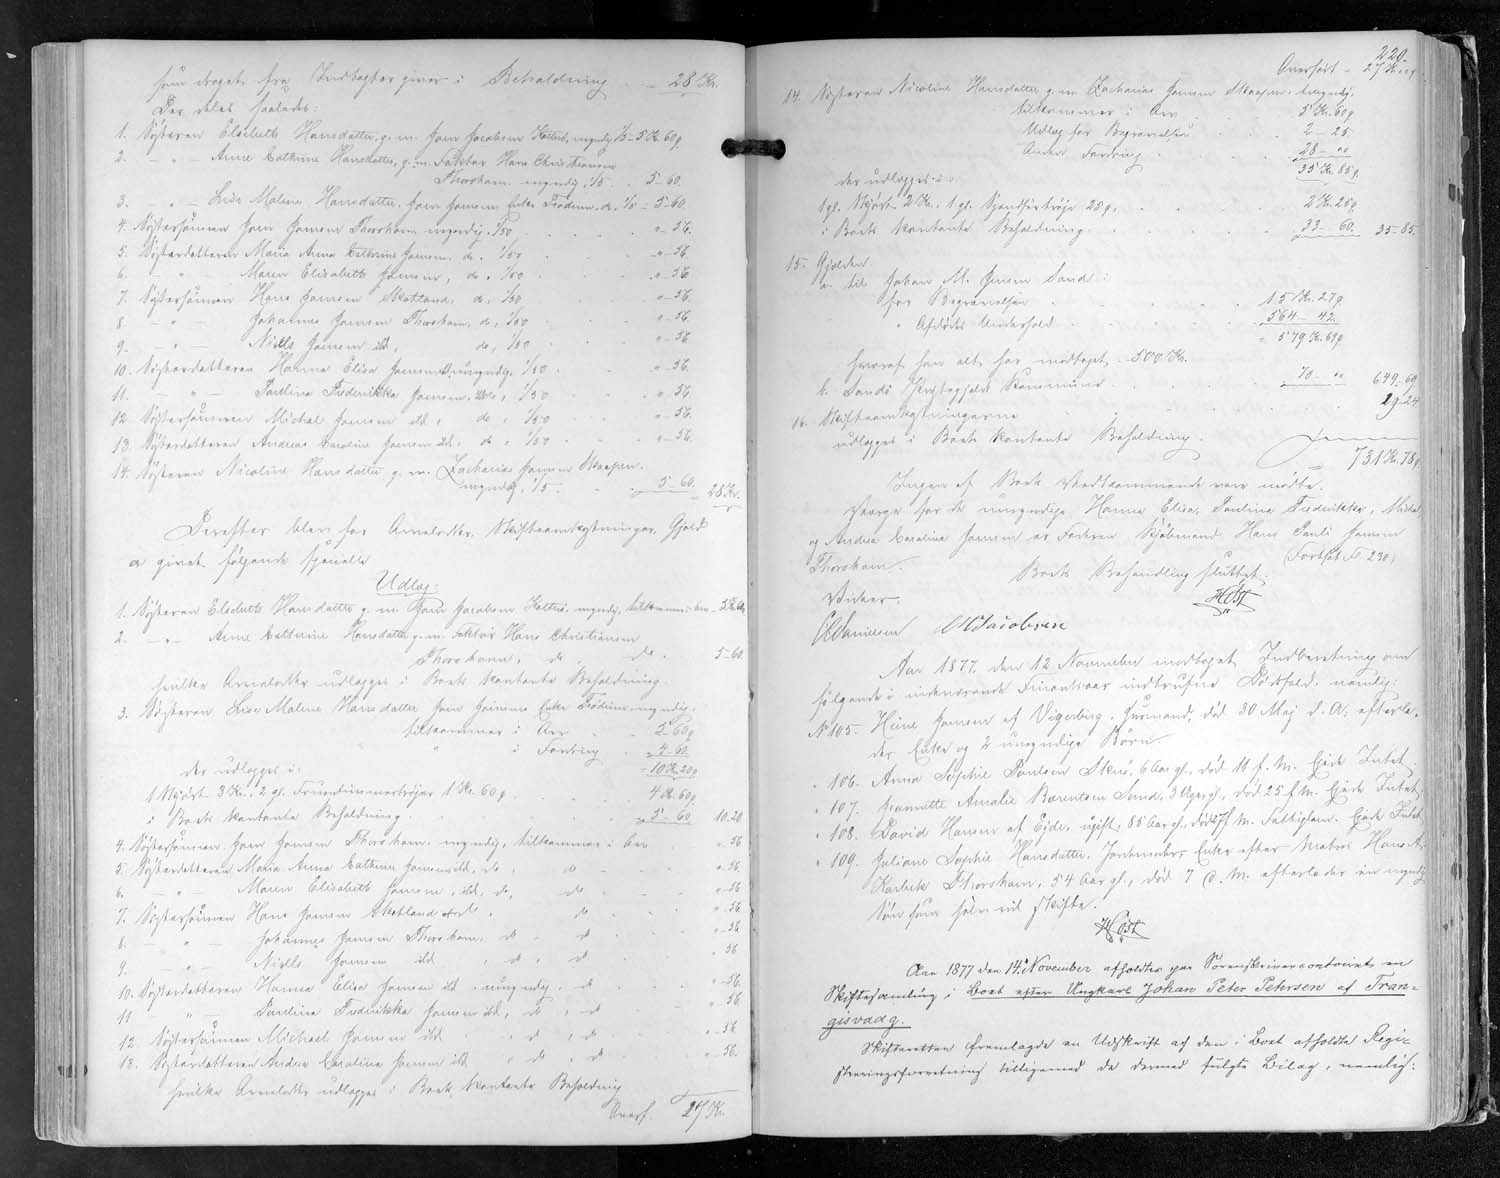 som draget fra Indtægter giver i Behaldning - 28 Kr.
Der deles saaledes:
1. Søsteren Elsebeth Hansdatter, g. m. Joen Jacobsen myndig 1/5 - 5 Kr. 60 ø
2. - " - Anne Cathrine Hansdatter, g. m. Faktor Hans Christiansen
Thorshavn, myndig, 1/5 - 5 - 60.
3. - " - Lise Malene Hansdatter, Joen Joensens Enke Frodum, do. 1/5 - 5 - 60
4. Søstersønnen Joen Joensen Thorshavn myndig, 1/50 " - 56.
5. Søsterdatteren Maria Anna Cathrine Joensen, do. 1/50 " - 56.
6. - " - Maren Elisabeth Joensen, do, 1/50 " - 56
7. Søstersønnen Hans Joensen Skotland, do, 1/50 " - 56.
8. - " - Johannes Joensen Thorshavn, do, 1/50 " - 56.
9. - " - Niells Joensen ibd, do, 1/50 " - 56
10. Søsterdatteren Hanna Elisa Joensen, umyndig, 1/50 " - 56.
11. - " - Paulina Frederikka Joensen, do, 1/50 " - 56.
12 Søstersønnen Michael Joensen ibd, do, 1/50 " - 56.
13. Søsterdatteren Andrea Caroline Joensen ibd, do, 1/50 " - 56.
14. Søsteren Nicoline Hansdatter g. m. Zacharias Joensen Skaapen
myndig, 1/5. 5 - 60. 28 Kr.
Derefter blev for Arvelodder, Skifteomkostninger, Gjæld
givet følgende specielle
Udlæg:
1. Søsteren Elsebeth Hansdatter g. m. Joen Jacobsen myndig, tilkommer i Arv - 5 Kr. 60
2. - " - Anne Cathrine Hansdatter g. m. Faktor Hans Christiansen
Thorshavn, do. do. 5 - 60.
hvilke Arvelodder udlægges i Boets kontante Beholdning.
3. Søsteren Lise Malene Hansdatter Joen Joensens Enke Frodum myndig,
tilkommer i Arv 5 - 60 ø
" i Fordring 4 - 60.
10 Kr. 20 ø
der udlægges i:
1 Skjørt 3 Kr. 2 gl. Fruentimmertrøjer 1 Kr. 60 ø 4 Kr. 60 ø
i Boets kontante Beholdning. 5 - 60 10.20
4. Søstersønnen Joen Joensen Thorshavn, myndig, tilkommer i Arv " - 56
5. Søsterdatteren Maria Anna Cathrine Joensen ibd, do, do " - 56
6. - " - Maren Elisabeth Joensen, ibd, do, do " - 56
7. Søstersønnen Hans Joensen Skotland do " - 56.
8. - " - Johannes Joensen Thorshavn, do - do " - 56.
9. - " - Niells Joensen ibd, do, do " 56
10. Søsterdatteren Hanna Elisa Joensen ibd umyndig, do " - 56.
11. " - Paulina Frederikka Joensen ibd, do, do " - 56.
12 Søstersønnen Michael Joensen ibd, do, do " - 56
13. Søsterdatteren Andrea Caroline Joensen ibd do, do " - 56.
hvilke Arvelodder udlægges i Boets kontante Beholdning
Overf. 27 Kr.
220.
Overført - 27 Kr.
14. Søsteren Nicoline Hansdatter g. m. Zacharias Joensen Skaapen, myndig,
tilkommer i Arv 5 Kr. 60 ø
Udlæg for Begravelsen 2 - 25
Anden Fordring 28 - "
35 Kr. 85 ø
der udlægges i:
1 gl. Skjørt 2 Kr., 1 gl. 25 ø, 2 Kr. 25 ø
i Boets kontante Beholdning. 33 - 60. 35 - 85.
15. Gjælden
a. til Johan M. Jensen Sand:
for Begravelsen 15 Kr. 27 ø
" Afdødes Underhold 564 - 42.
579 Kr. 69 ø
hvoraf han alt har modtaget 500 Kr.
b. Sands Præstegjælds Kommune 70 - " 649 - 69
16. Skifteomkostningerne 19 - 24
udlægges i Boets kontante Beholdning.
731 Kr. 78 ø
Ingen af Boets Vedkommende vare mødte.
Værge for de umyndige Hanna Elisa, Paulina Frederikka, Michael
og Andrea Caroline Joensen er Faderen Kjøbmand Hans Pauli Joensen
Thorshavn. (Fortsat Fol. 230)
Boets Behandling sluttet.
Vidner. Høst
Danielsen Jacobsen
Aar 1877, den 12 November modtoges Indberetning om
følgende i indeværende Finantsaar indtrufne Dødsfald, nemlig:
No 105. Heine Joensen af Vigerbirg, Husmand, død 30 Maj d. A. efterla-
der Enke og 2 umyndige Børn.
" 106. Anna Sophie Poulsen Skuø, 6 Aar gl., død 11 f. M. Ejede Intet.
" 107. Jeannette Amalie Barentsen Sand, 3 Uger gl., død 25 f. M. Ejede Intet
" 108. David Hansen af Ejde, ugift, 85 Aar gl., død f. M. Fattiglem. Ejede Intet
" 109. Juliane Sophie Hansdatter, Jordemoder, Enke efter Matros Hans A.
Thorshavn, 54 Aar gl., død 7 d. M. efterlader en myndig
Søn som selv vil skifte.
Høst
Aar 1877 den 14de November afholdtes paa Sorenskrivercontoiret en
Skiftesamling i Boet efter Ungkarl Johan Peter Petersen af Tran-
gisvaag.
Skifteretten fremlagde en Udskrift af den i Boet afholdte Regi-
streringsforretning tilligemed de dermed fulgte Bilag, nemlig: